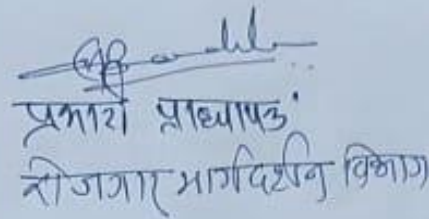 प्रभारी प्राध्यापक
रोजगार मार्गदर्शन विभाग